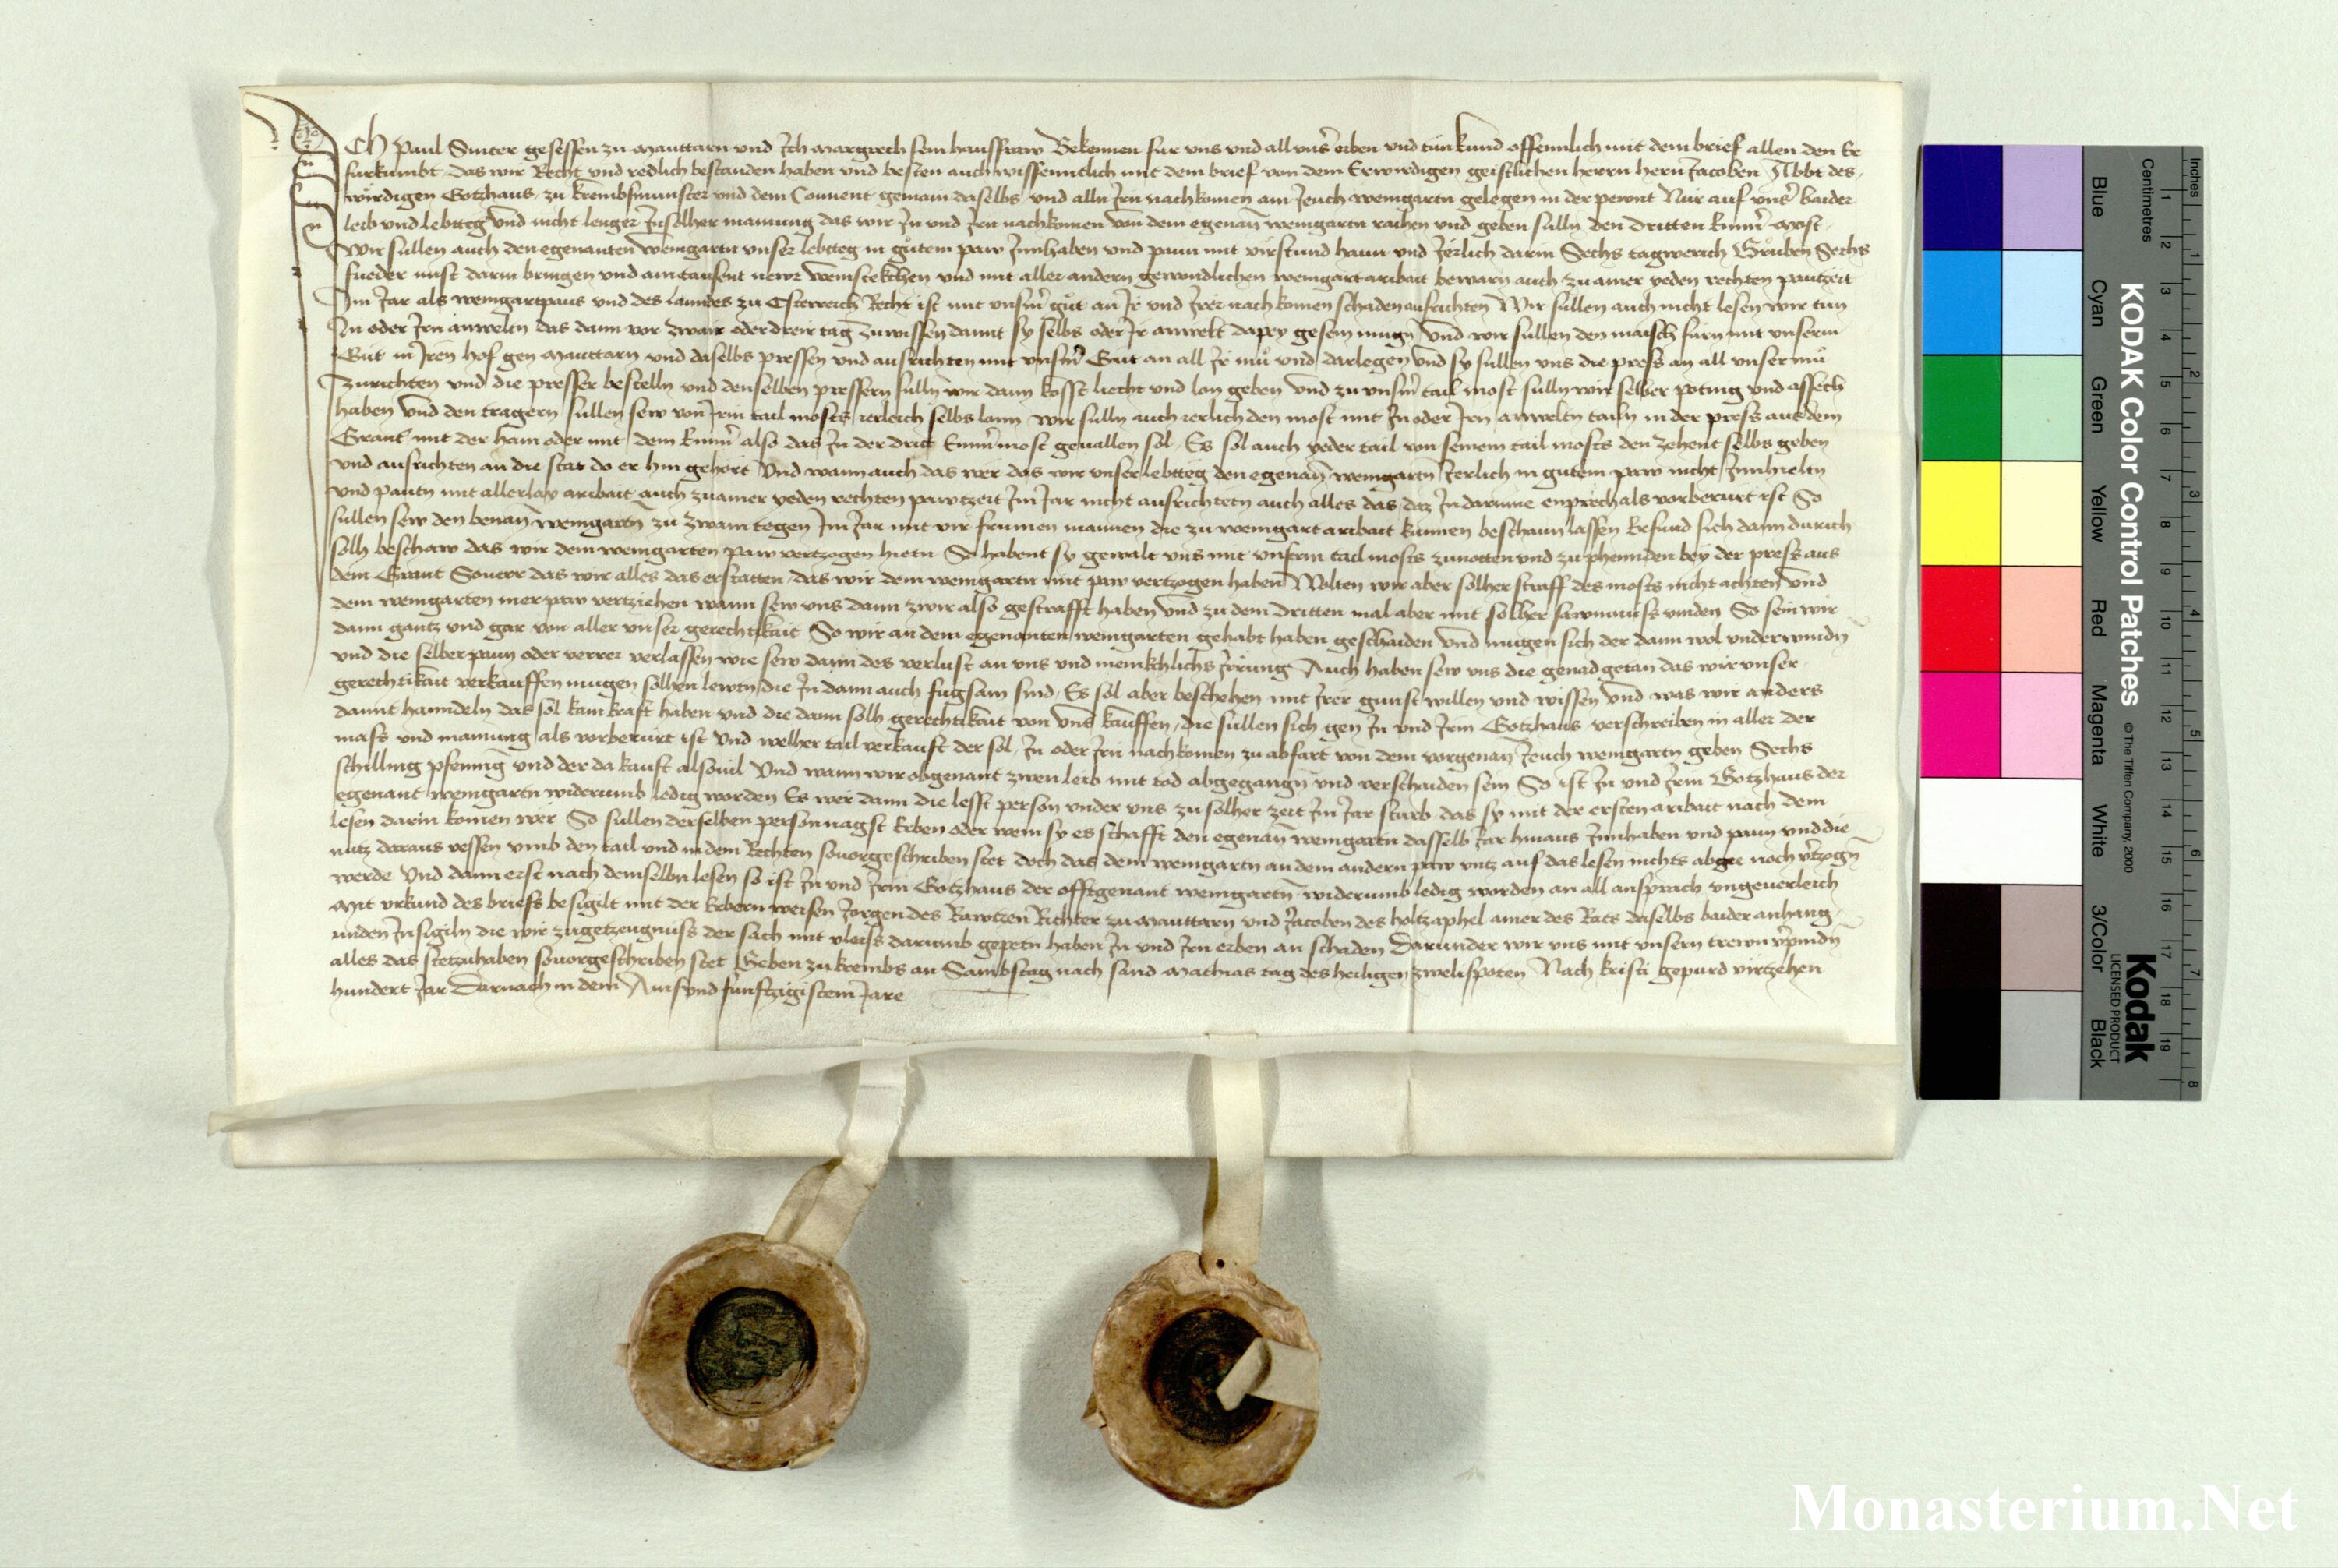 Ich Paul Sinter gesessen zu Mauttarn und Ich Margreth sein hausfraw Bekennen fur uns und all uns̄ erben und tun kund offennlich mit dem brief allen den Er
furkumbt Das wir Recht und redlich bestanden haben und besten auch wissenntlich mit dem brief von dem Erwirdigen geistlichen herrn hern Jacoben Abbt des
wirdigen Gotzhaus zu krembsmunster und dem Convent gemain daselbs und alln Irn nachkomen ain Jeuch weingartn gelegen in der pewnt Nur auf uns̄ baider
leib und lebtteg und nicht lenger Insolher mainung das wir In und Irn nachkomen von dem egenan̄ weingartn raihen und geben sulln den dritten Emm̄ Most
Wir sullen auch den egenanten weingartn unser lebtteg in gutem paw Innhaben und paun mit virstund haun und Jerlich darin Sechs tagwerich Gruben Sechs
fueder mist darin bringen und ain tausent newr weinstekchen und mit aller andern gewondlichen weingart aribait bewarn auch zu ainer yeden rechten pauzeit
Im Jar als weingartpaus und des Lanndes zu Osterreich Recht ist mit unsm̄ gut an Ir und Irer nachkomen schaden ausrichten Wir sullen auch nicht lesen wir tun
In oder Irn anweltn das dann vor zwair oder dreir tag zuwissen damit sy selbs oder Ir anwelt dapey gesein mugn Und wir sullen den maisch furn mit unserm
Gut in Iren hof gen Mauttarn und daselbs pressen und ausrichten mit unsm̄ Gut an all Ir mu und darlegen Und sy sullen uns die press an all unser mu
zurichten und die presser bestelln und denselben pressern sulln wir dann kosst liecht und lon geben Und zu unsm̄ tail most sulln wir selber poting und assech
haben Und den tragern sullen sew von Irm tail mosts ierleich selbs lonn Wir sulln auch ierlich den most mit In oder Irn anweltn tailn in der press aus dem
Grant mit der ham oder mit dem Emm̄ also das In der drit Emm̄ most geuallen sol Es sol auch yeder tail von seinem tail mosts den zehent selbs geben
und ausrichten an die stat do er hin gehort Und wann auch das wer das wir unser lebtteg den egenan̄ weingartn Jerlich in gutem paw nicht Innhieltn
und pautn mit allerlay aribait auch zu ainer yeden rechten pawtzeit Im Jar nicht ausrichtetn auch alles das daz In darinne enprech als vorberurt ist So
sullen sew den benan̄ weingartn zu zwain tegen Im Jar mit vir frumen mannen die zu weingart aribait kunnen beschaun lassen Erfund sich dann durich
solh beschaw das wir dem weingarten paw vertzogen hietn So habent sy gewalt uns mit unserm tail mosts zunotten und zu phennden bey der press aus
dem Grant Souerr das wir alles das erstatten das wir dem weingartn mit paw vertzogen haben Wolten wir aber solher straff des mosts nicht achten Und
dem weingarten mer paw vertziehen wann sew uns dann zwir also gestrafft haben Und zu dem dritten mal aber mit solher sawmnuss vinden So sein wir
dann gantz und gar von aller unser gerechtikait So wir an dem egenanten weingarten gehabt haben geschaiden Und mugen sich der dann wol underwindn
und die selber paun oder verrer verlassen wie sew dann des verlust an uns und menikchlichs Irrung Auch haben sew uns die genad getan das wir unser
gerechtikait verkauffen mugen solhen lewtn die In dann auch fugsam sind Es sol aber beschehen mit Irer gunst willen und wissen Und was wir anders
damit hanndeln das sol kain kraft haben und die dann solh gerechtikait von uns kauffen die sullen sich gen In und Irm Gotzhaus verschreiben in aller der
mass und mainung als vorberurt ist Und welher tail verkauft der sol In oder Irn nachkomen zu abfart von dem vorgenan̄ Jeuch weingartn geben Sechs
schilling pfennig und der da kauft alsouil Und wann wir obgenant zwen leib mit tod abgegangn und verschaiden sein So ist In und Irm Gotzhaus der
egenant weingartn widerumb ledig worden Es wer dann die lesst person under uns zu solher zeit Im Jar starb das sy mit der ersten aribait nach dem
lesen darin komen wer So sullen derselben person nagst Erben oder wem sy es schafft den egenan̄ weingartn dasselb Jar hinaus Innhaben und paun und die
nutz daraus vessen umb den tail und in dem Rechten souorgeschriben stet doch das dem weingartn an dem andern paw untz auf das lesen nichts abgee noch v̄tzogn
werde Und dann erst nach demselbn lesen so ist In und Irm Gotzhaus der offtgenant weingartn widerumb ledig worden an all ansprach ungeuerleich
Mit urkund des briefs besigilt mit der Erbern weisen Jorgen des Rawtzen Richter zu Mauttarn und Jacoben des holtzaphel ainer des Rats daselbs baider anhang
unden Insigiln die wir zugetzeugnuss der sach mit vleiss darumb gepetn haben In und Irn erben an schaden Darunder wir uns mit unsern trewn v̄pindn
alles das stetzuhaben souorgeschriben stet Geben zu krembs an Sambstag nach sand Mathias tag des heiligen zwelifpoten Nach kristi gepurd virtzehen
hundert Jar Darnach in dem Ains und funftzigistem Jare
KODAK Color Control Patches © The Tiffen Company, 2000
Kodak
LICENSED PRODUCT
Inches 1 2 3 4 5 6 7 8
Centimetres 1 2 3 4 5 6 7 8 9 10 11 12 13 14 15 16 17 18 19
Blue Cyan Green Yellow Red Magenta White 3/Color Black
Monasterium.Net